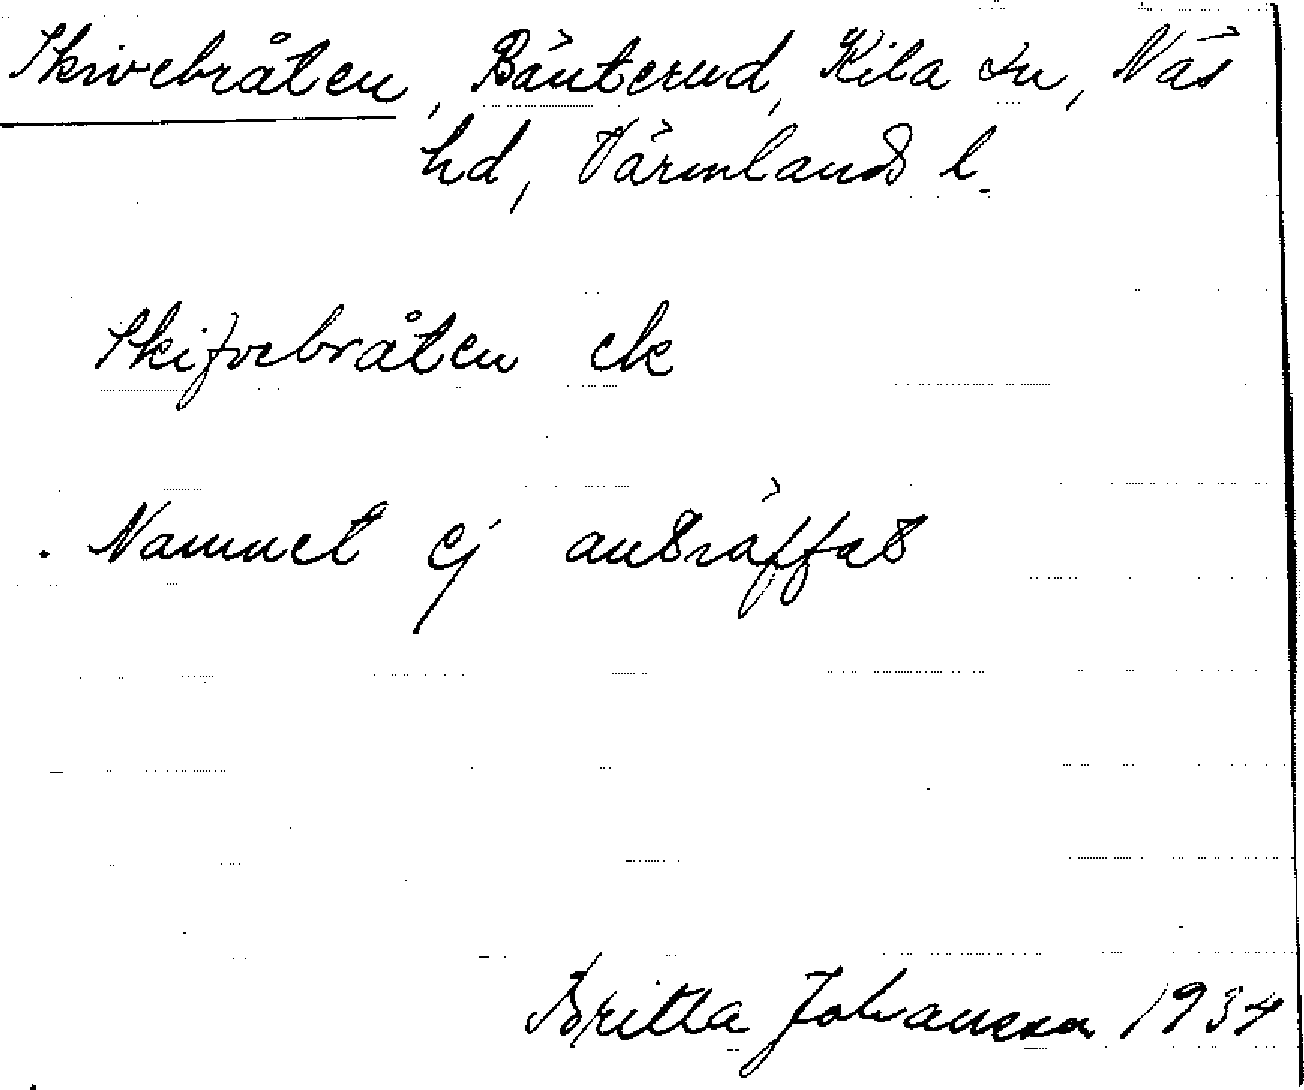 Skivebråten, Bänterud, Kila sn, Näs
hd, Värmlands l.
Skifvebråten ek
Namnet ej anträffat
Britta Johansson 1934